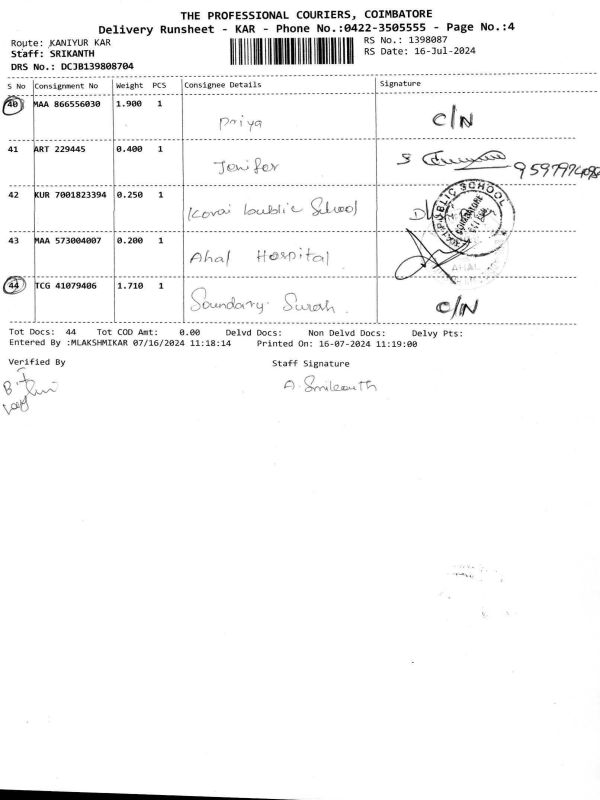 THE PROFESSIONAL COURIERS, COIMBATORE
Delivery Runsheet - KAR - Phone No.:0422-3505555 - Page No.:4
Route: KANIYUR KAR
RS No.: 1398087
Staff: SRIKANTH
RS Date: 16-Jul-2024
DRS No.: DCJB139808704
S No Consignment No Weight PCS Consignee Details Signature
40 MAA 866556030 1.900 1 Priya C/N
41 ART 229445 0.400 1 Jenifer
42 KUR 7001823394 0.250 1 Kovai Public School
PUBLIC SCHOOL
43 MAA 573004007 0.200 1 Ahal Hospital
AHAL
44 TCG 41079406 1.710 1 Soundary. C/N
Tot Docs: 44 Tot COD Amt: 0.00 Delvd Docs: Non Delvd Docs: Delvy Pts:
Entered By :MLAKSHMIKAR 07/16/2024 11:18:14 Printed On: 16-07-2024 11:19:00
Verified By Staff Signature